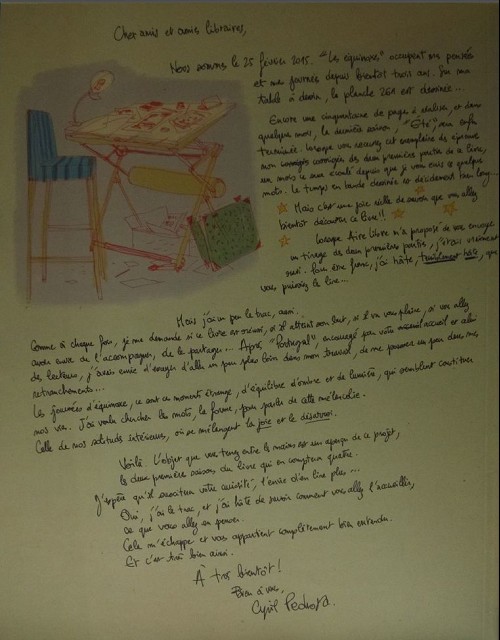 Cher amis et amies libraires,
Nous sommes le 25 février 2015. "Les équinoxes" occupent mes pensées
et mes journées depuis bientôt trois ans. Sur ma
table à dessin, la planche 261 est dessinée...
Encore une cinquantaine de pages à réaliser, et dans
quelques mois, la dernière saison, "Été", sera enfin
terminée. Lorsque vous recevrez cet exemplaire
des deux premières parties de ce livre,
un mois se sera écoulé depuis que je vous écris ces quelques
mots. Le temps en bande dessinée est décidément bien long...
Mais c'est une joie de savoir que vous allez
bientôt découvrir ce livre!!
Lorsque Aire Libre m'a proposé de vous envoyer
un tirage des deux premières parties, j'étais vraiment
ravi. Pour être franc, j'ai hâte, hâte, que
vous puissiez le lire...
Mais j'ai un peu le trac, aussi.
Comme à chaque fois, je me demande si ce livre est réussi, s'il atteint son but, si il va vous plaire, si vous allez
avoir envie de l'accompagner, de le partager... Après "Portugal", encouragé par votre accueil et celui
des lecteurs, j'avais envie d'essayer d'aller un peu plus loin dans mon travail, de me pousser un peu dans mes
retranchements...
Les journées d'équinoxe, ce sont ces moments étranges, d'équilibre d'ombre et de lumière, qui semblent constituer
nos vies. J'ai voulu chercher les mots, la forme, pour parler de cette mélancolie.
Celle de nos solitudes intérieures, où se mélangent la joie et le désarroi.
Voilà. L'objet que vous tenez entre les mains est un aperçu de ce projet,
les deux premières saisons du livre qui en comptera quatre.
J'espère qu'il suscitera votre curiosité, l'envie d'en lire plus...
Oui, j'ai le trac, et j'ai hâte de savoir comment vous allez l'accueillir,
ce que vous allez en penser.
Cela m'échappe et vous appartient complètement bien entendu.
Et c'est très bien ainsi.
À très bientôt!
Bien à vous,
Cyril Pedrosa.